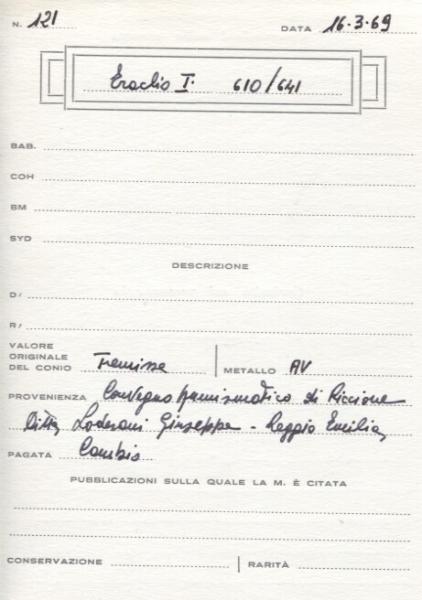 N. 121 DATA 16.3.69
Eraclio I. 610/641
BAB.
COH
BM
SYD
DESCRIZIONE
D/
R/
VALORE
ORIGINALE
DEL CONIO Tremisse METALLO AV
PROVENIENZA Convegno Numismatico di Riccione
Ditta Giuseppe - Reggio Emilia
PAGATA Cambio
PUBBLICAZIONI SULLA QUALE LA M. È CITATA
CONSERVAZIONE RARITÀ